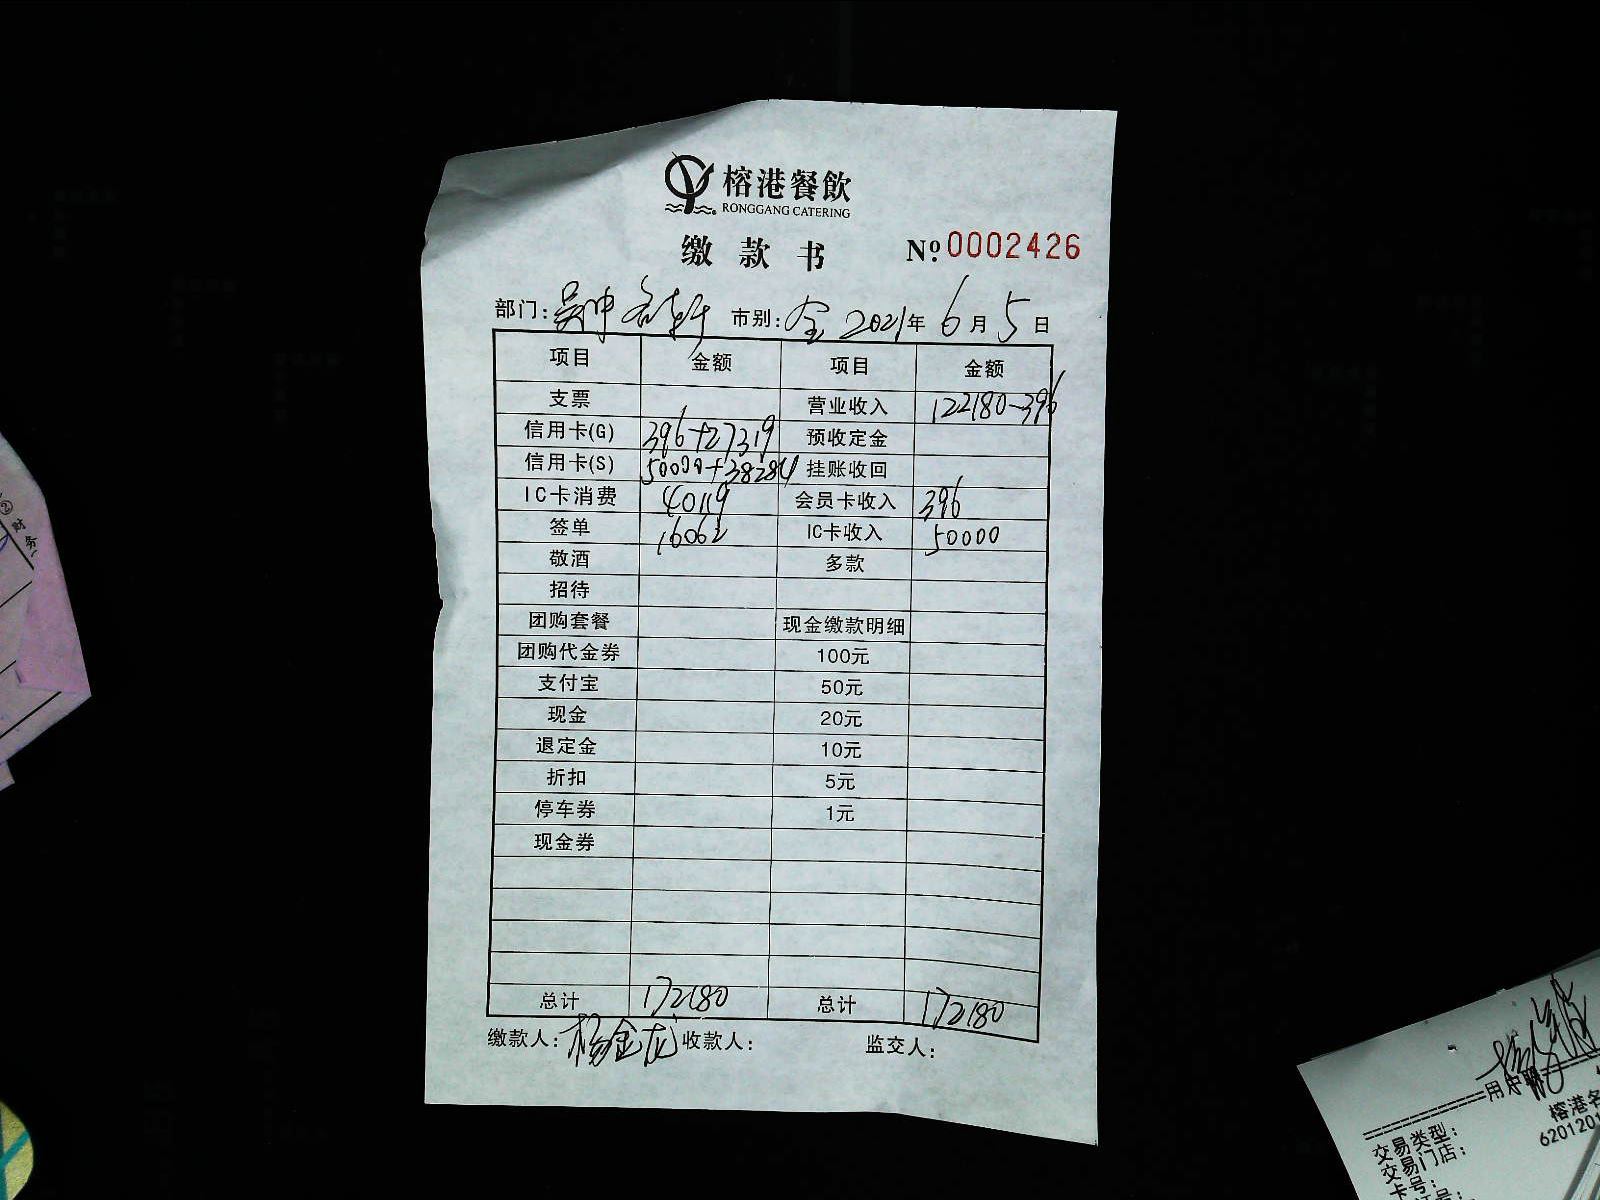 榕港餐飲
RONGGANG CATERING
缴款书 №.0002426
部门: 吴中名轩 市别: 全 2021年 6月 5日
项目 金额 项目 金额
支票 营业收入 122180-396
信用卡(G) 396+27319 预收定金
信用卡(S) 50000+38284 挂账收回
IC卡消费 40119 会员卡收入 396
签单 16062 IC卡收入 50000
敬酒 多款
招待
团购套餐 现金缴款明细
团购代金券 100元
支付宝 50元
现金 20元
退定金 10元
折扣 5元
停车券 1元
现金券
总计 172180 总计 172180
缴款人: 杨金龙 收款人: 监交人:
② 财务
用户
榕港名
620120
交易类型:
交易门店:
卡号: